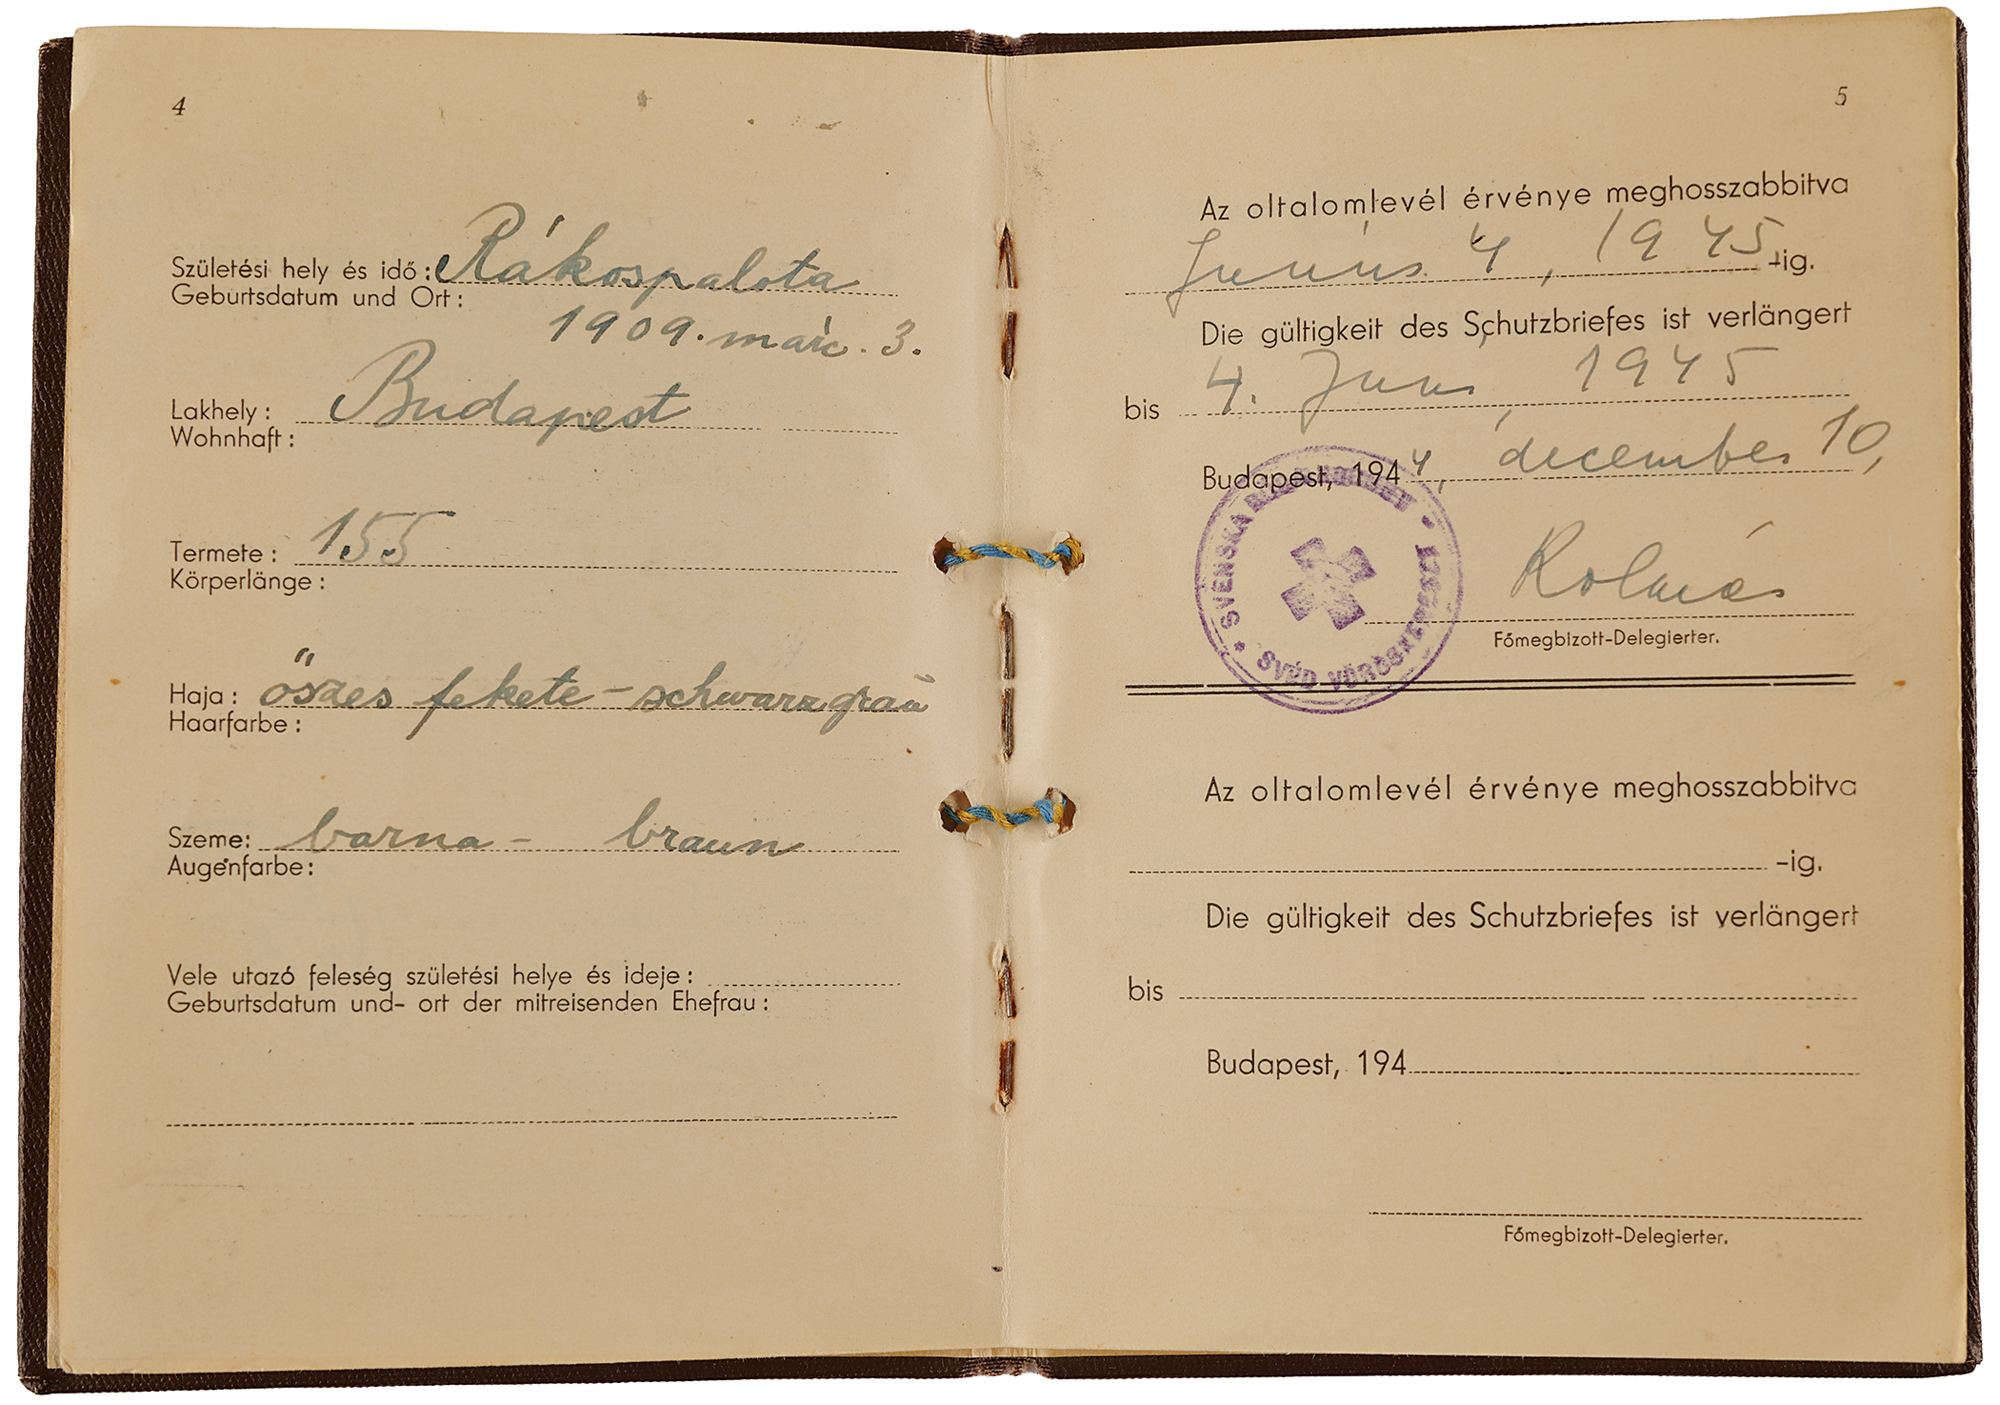 4
Születési hely és idő: Rákospalota
Geburtsdatum und Ort:
1909. márc. 3.
Lakhely: Budapest
Wohnhaft:
Termete: 155
Körperlänge:
Haja: őszes fekete – schwarzgrau
Haarfarbe:
Szeme: barna – braun
Augenfarbe:
Vele utazó feleség születési helye és ideje:
Geburtsdatum und- ort der mitreisenden Ehefrau:
5
Az oltalomlevél érvénye meghosszabbitva
Junius 4, 1945 -ig.
Die gültigkeit des Schutzbriefes ist verlängert
bis 4. Juni 1945
Budapest, 1944, december 10,
SVENSKA RÖDA KORSET
SVÉD VÖRÖSKERESZT
Főmegbizott-Delegierter.
Az oltalomlevél érvénye meghosszabbitva
-ig.
Die gültigkeit des Schutzbriefes ist verlängert
bis
Budapest, 194
Főmegbizott-Delegierter.